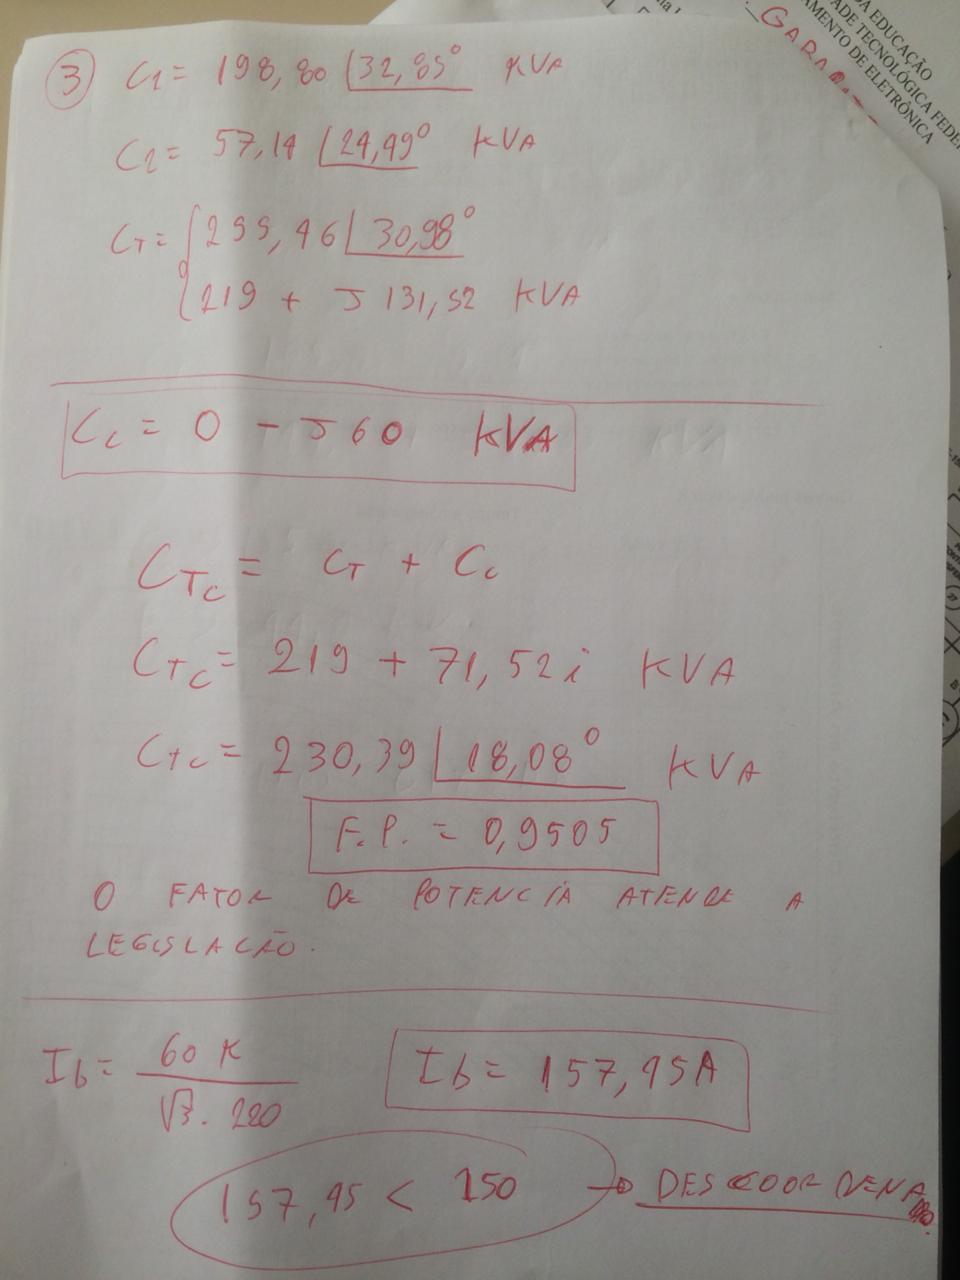 GARA
DA EDUCAÇÃO
ADE TECNOLÓGICA FEDE
AMENTO DE ELETRÔNICA
3 C1 = 198,80 ∠32,85° KVA
C2 = 57,14 ∠24,49° KVA
CT = { 255,46 ∠30,98°
219 + J 131,52 KVA
Cc = 0 - J 60 KVA
CTc = CT + Cc
CTc = 219 + 71,52i KVA
Ctc = 230,39 ∠18,08° KVA
F.P. = 0,9505
O FATOR DE POTENCIA ATENDE A
LEGISLAÇÃO.
Ib = 60 K / √3 . 220 Ib = 157,45A
157,45 < 150 → DESCOORDENA